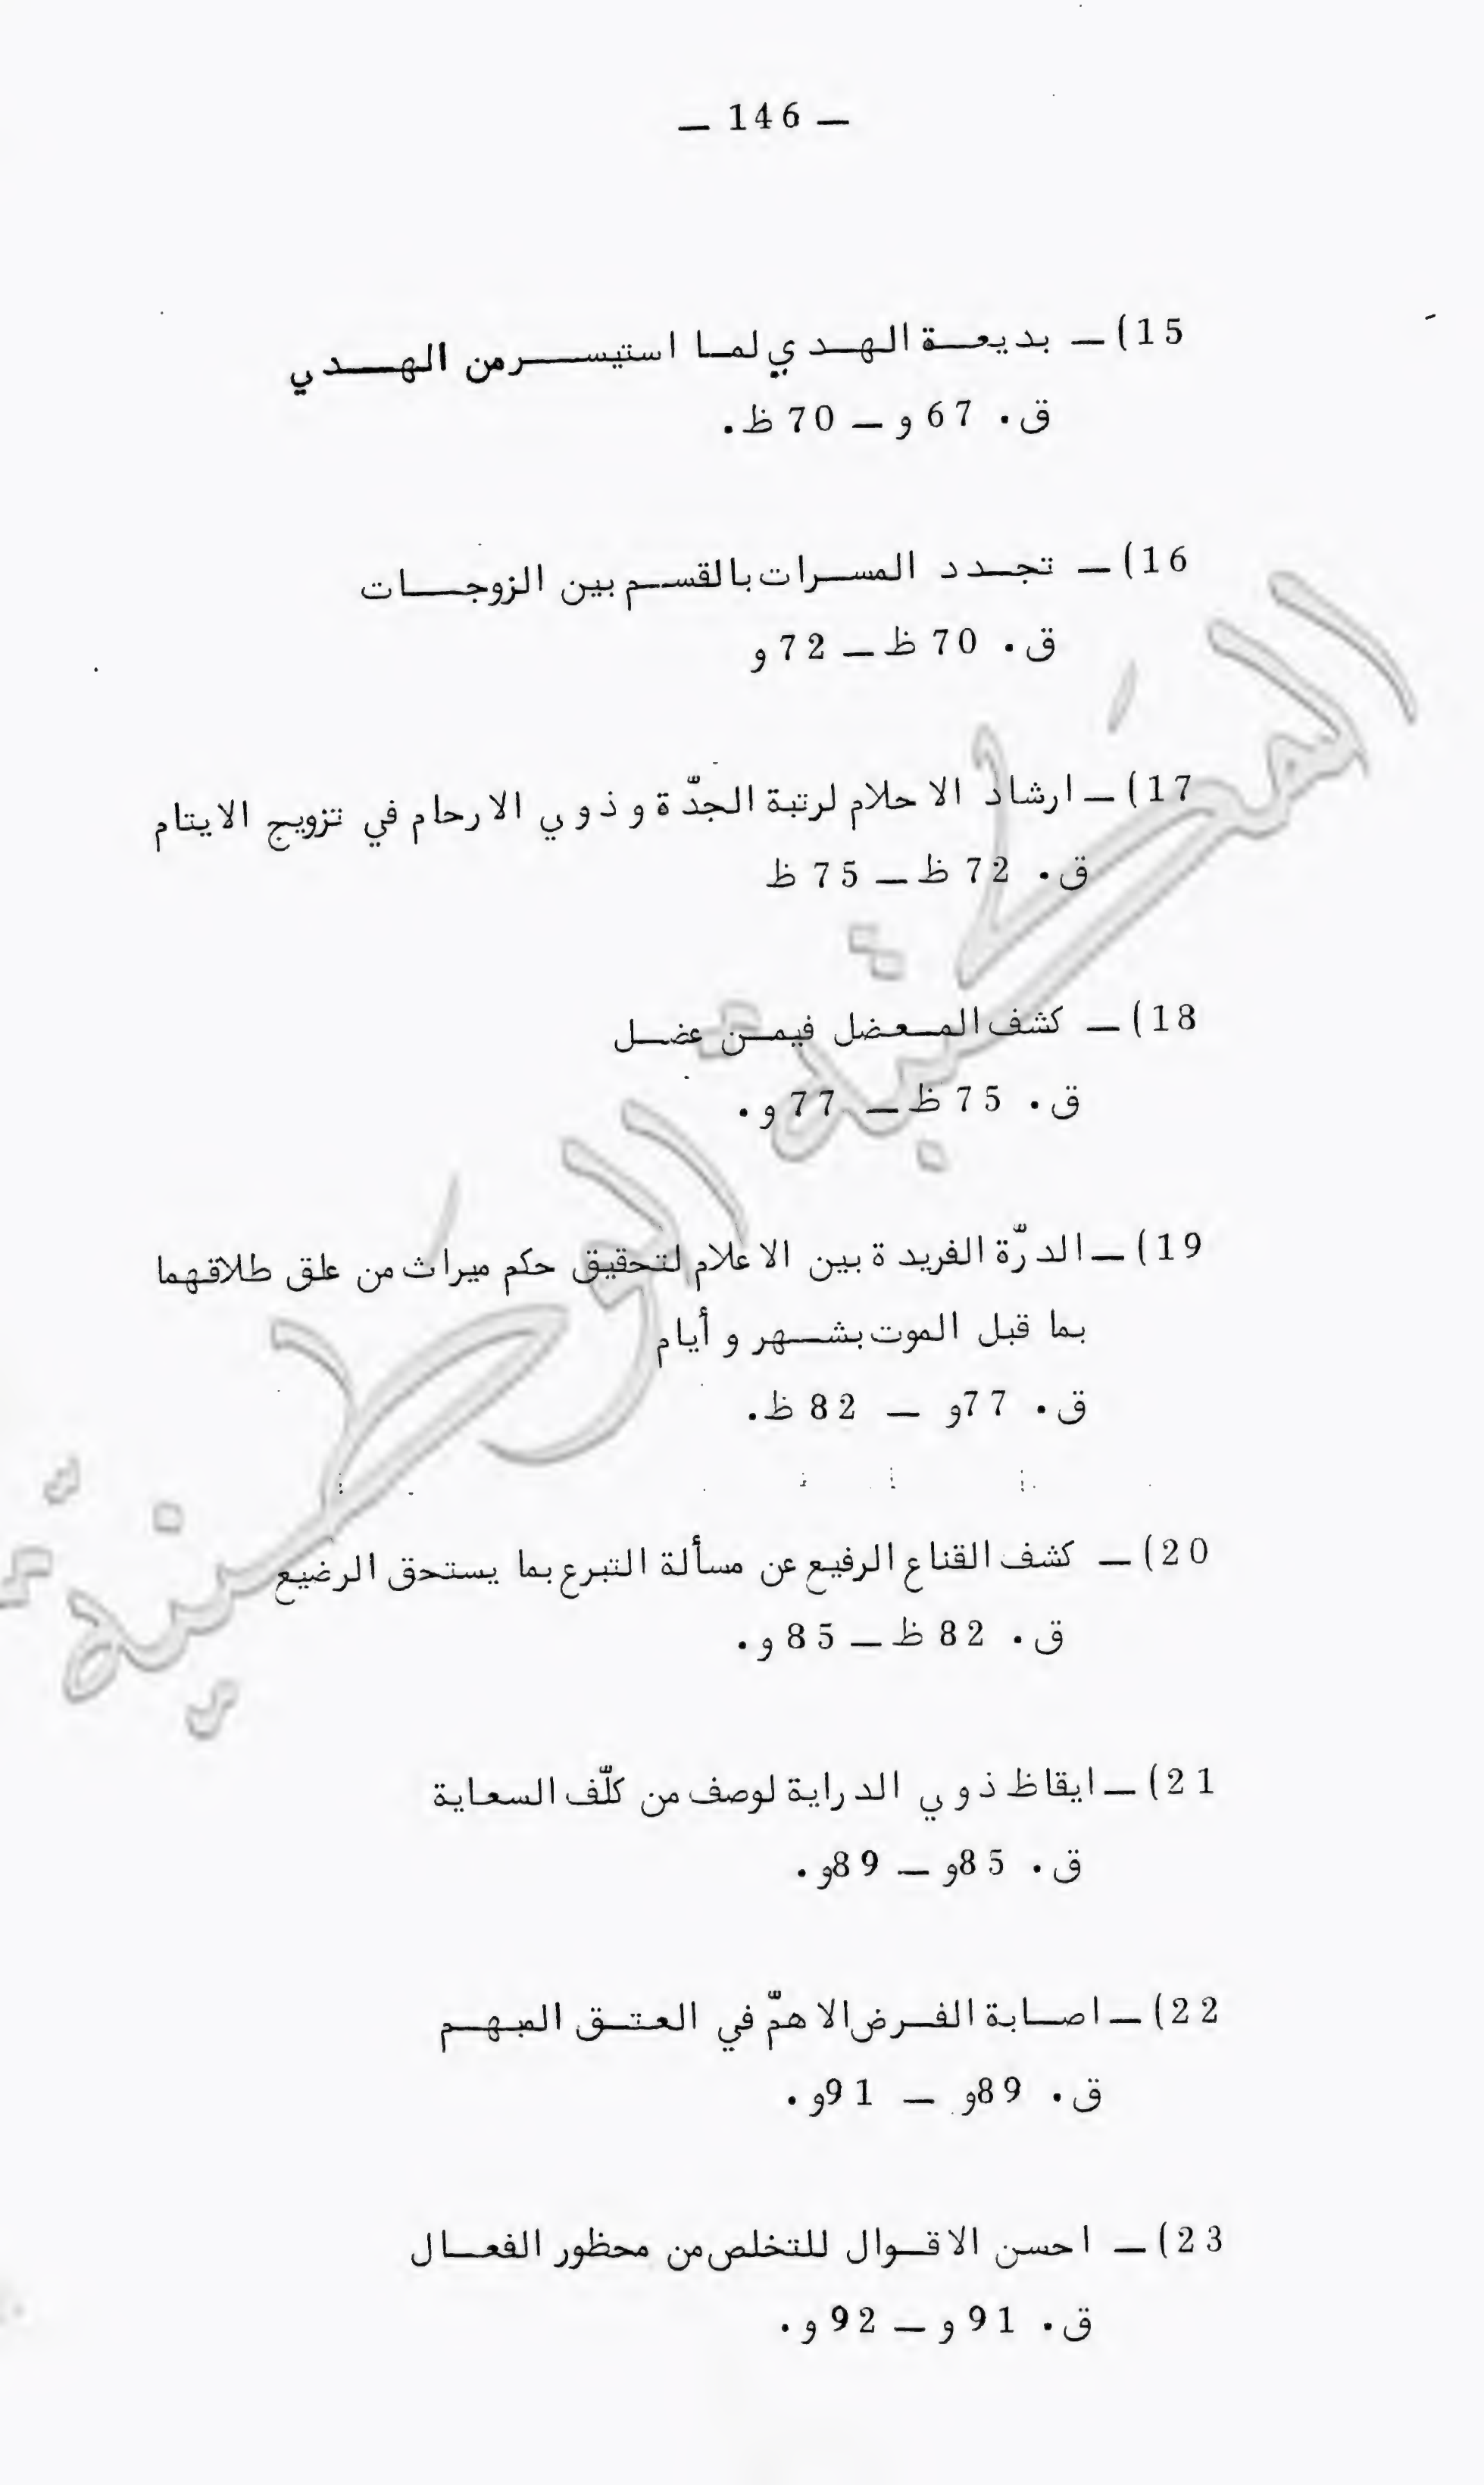 — 146 —
15) — بديعة الهدي لما استيسر من الهدي
ق. 67 و — 70 ظ.
16) — تجدد المسرات بالقسم بين الزوجات
ق. 70 ظ — 72 و
17) — ارشاد الاحلام لرتبة الجدّة و ذوي الارحام في تزويج الايتام
ق. 72 ظ — 75 ظ
18) — كشف المعضل فيمن عضل
ق. 75 ظ — 77 و.
19) — الدرّة الفريدة بين الاعلام لتحقيق حكم ميراث من علق طلاقهما
بما قبل الموت بشهر و أيام
ق. 77و — 82 ظ.
20) — كشف القناع الرفيع عن مسألة التبرع بما يستحق الرضيع
ق. 82 ظ — 85 و.
21) — ايقاظ ذوي الدراية لوصف من كلّف السعاية
ق. 85و — 89و.
22) — اصابة الفرض الاهمّ في العتق المبهم
ق. 89و — 91و.
23) — احسن الاقوال للتخلص من محظور الفعال
ق. 91 و — 92 و.
المكتبة الوطنية